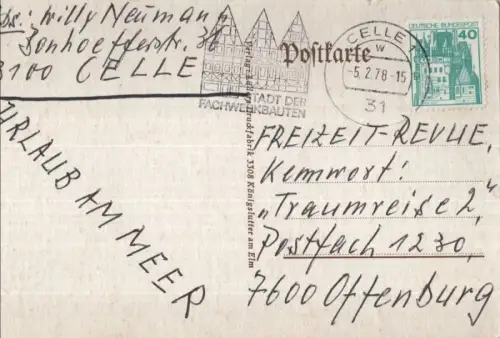 Abs.: Willy Neumann
Bonhoefferstr. 36
3100 CELLE
URLAUB AM MEER
STADT DER
FACHWERKBAUTEN
Postkarte
CELLE 1
w
-5.2.78-15
31
DEUTSCHE BUNDESPOST
40
Druckfabrik 3308 Königslutter am Elm
FREIZEIT-REVUE,
Kennwort:
„Traumreise 2",
Postfach 1230,
7600 Offenburg